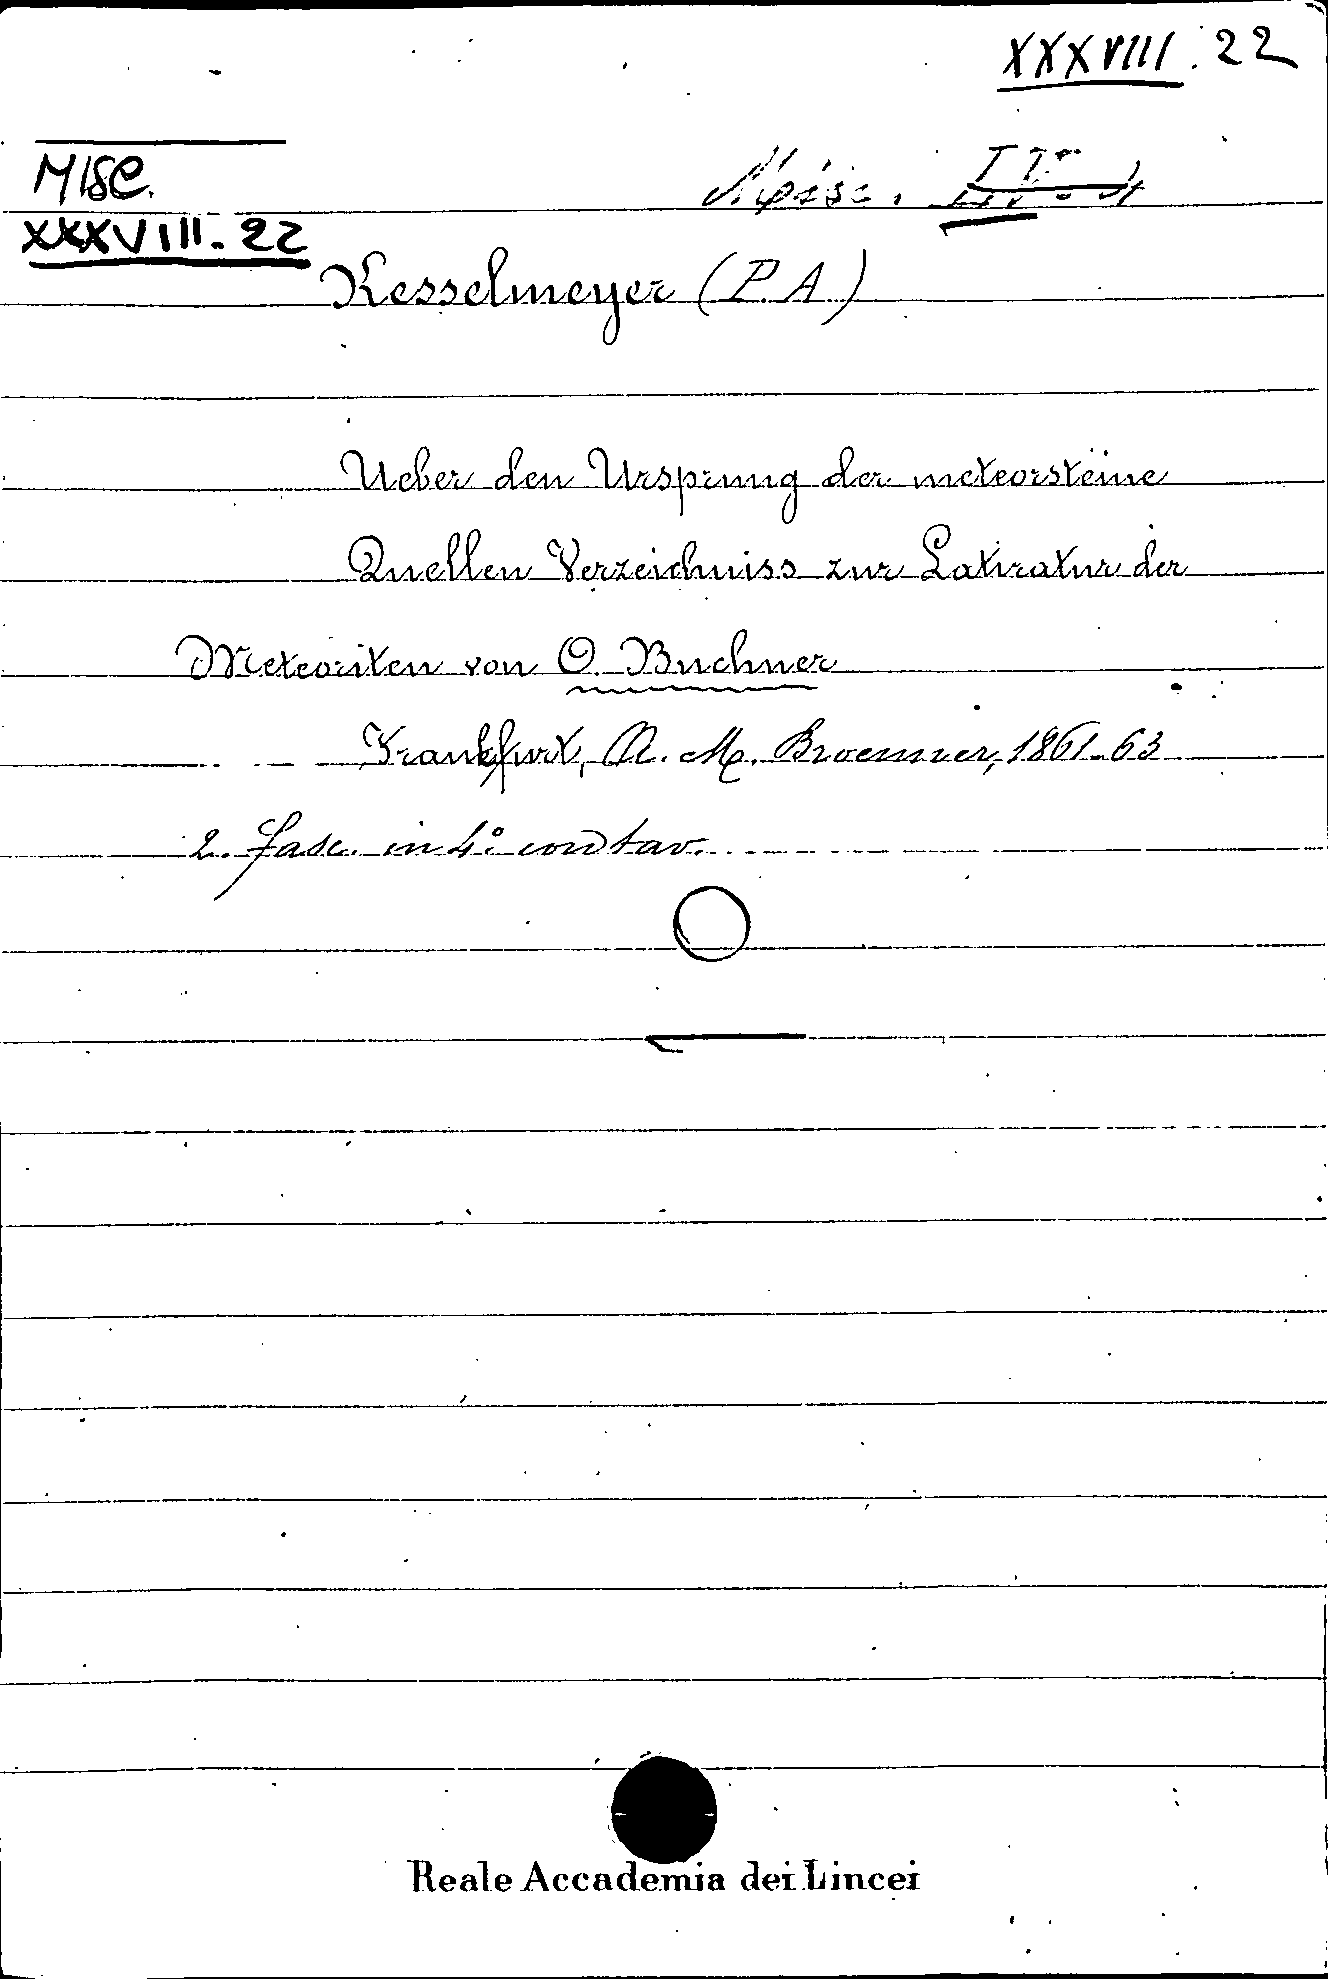 XXXVIII. 22
MISC.
XXXVIII. 22
Misc.
Kesselmeyer (P. A)
Ueber den Ursprung der meteorsteine
Quellen Verzeichniss zur Latiratur der
Meteoriten von O. Buchner
Frankfurt, A. M. Broenner, 1861-63
2. fasc. in 4° con tav.
Reale Accademia dei Lincei